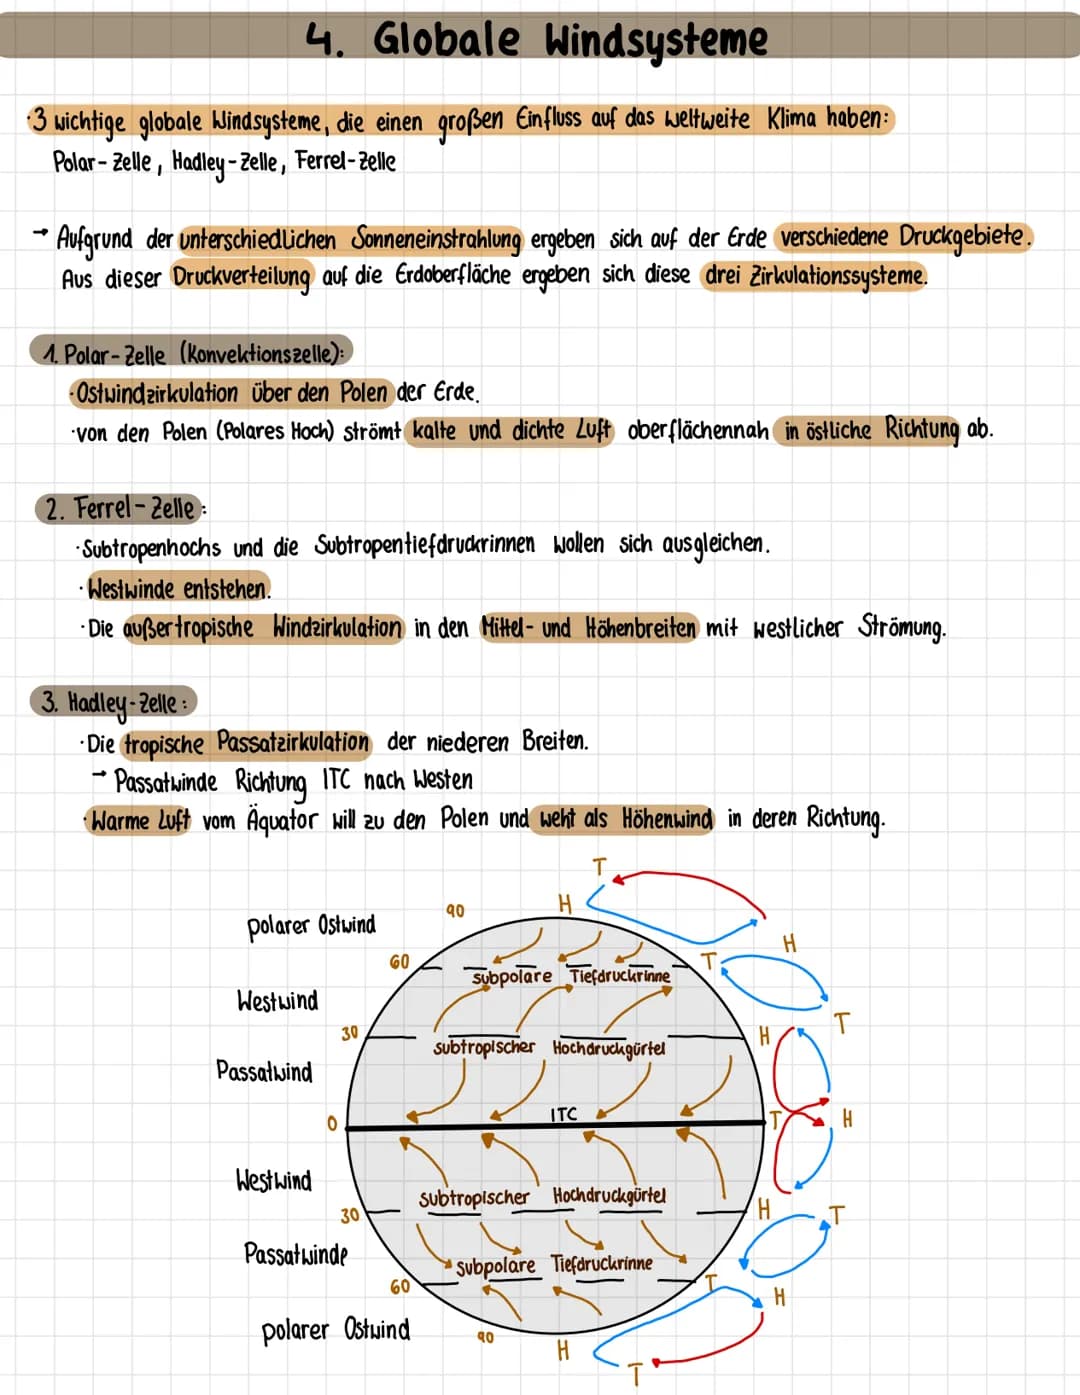 4. Globale Windsysteme
·3 wichtige globale Windsysteme, die einen großen Einfluss auf das weltweite Klima haben:
Polar-Zelle, Hadley-Zelle, Ferrel-Zelle
→ Aufgrund der unterschiedlichen Sonneneinstrahlung ergeben sich auf der Erde verschiedene Druckgebiete.
Aus dieser Druckverteilung auf die Erdoberfläche ergeben sich diese drei Zirkulationssysteme.
1. Polar-Zelle (Konvektionszelle):
·Ostwindzirkulation über den Polen der Erde.
·von den Polen (Polares Hoch) strömt kalte und dichte Luft oberflächennah in östliche Richtung ab.
2. Ferrel-Zelle:
·Subtropenhochs und die Subtropentiefdruckrinnen wollen sich ausgleichen.
·Westwinde entstehen.
·Die außertropische Windzirkulation in den Mittel- und Höhenbreiten mit westlicher Strömung.
3. Hadley-Zelle:
·Die tropische Passatzirkulation der niederen Breiten.
→ Passatwinde Richtung ITC nach Westen
·Warme Luft vom Äquator will zu den Polen und weht als Höhenwind in deren Richtung.
T
90 H
polarer Ostwind
H
60 T
subpolare Tiefdruckrinne
Westwind
T
30 H
subtropischer Hochdruckgürtel
Passatwind
ITC
0 T H
Westwind
subtropischer Hochdruckgürtel
30 H T
Passatwinde
subpolare Tiefdruckrinne
60 T H
polarer Ostwind
90 H
T